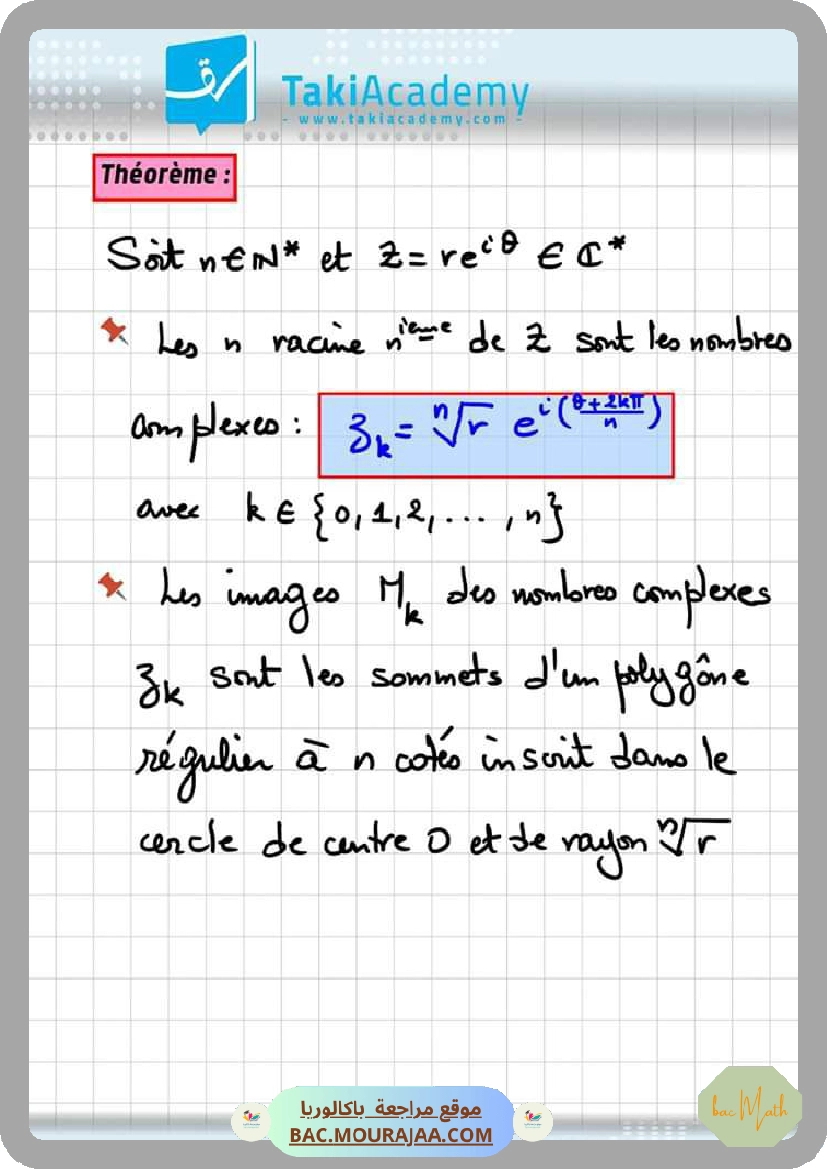 سق
TakiAcademy
- www.takiacademy.com -
Théorème :
Soit n ∈ ℕ* et Z = re^{iθ} ∈ ℂ*
Les n racine n^{ième} de Z sont les nombres
complexes : z_k = ⁿ√r e^{i(\frac{θ+2kπ}{n})}
avec k ∈ {0, 1, 2, ... , n}
Les images M_k des nombres complexes
z_k sont les sommets d'un polygône
régulier à n cotés inscrit dans le
cercle de centre O et de rayon ⁿ√r
موقع مراجعة باكالوريا
BAC.MOURAJAA.COM
bac Math